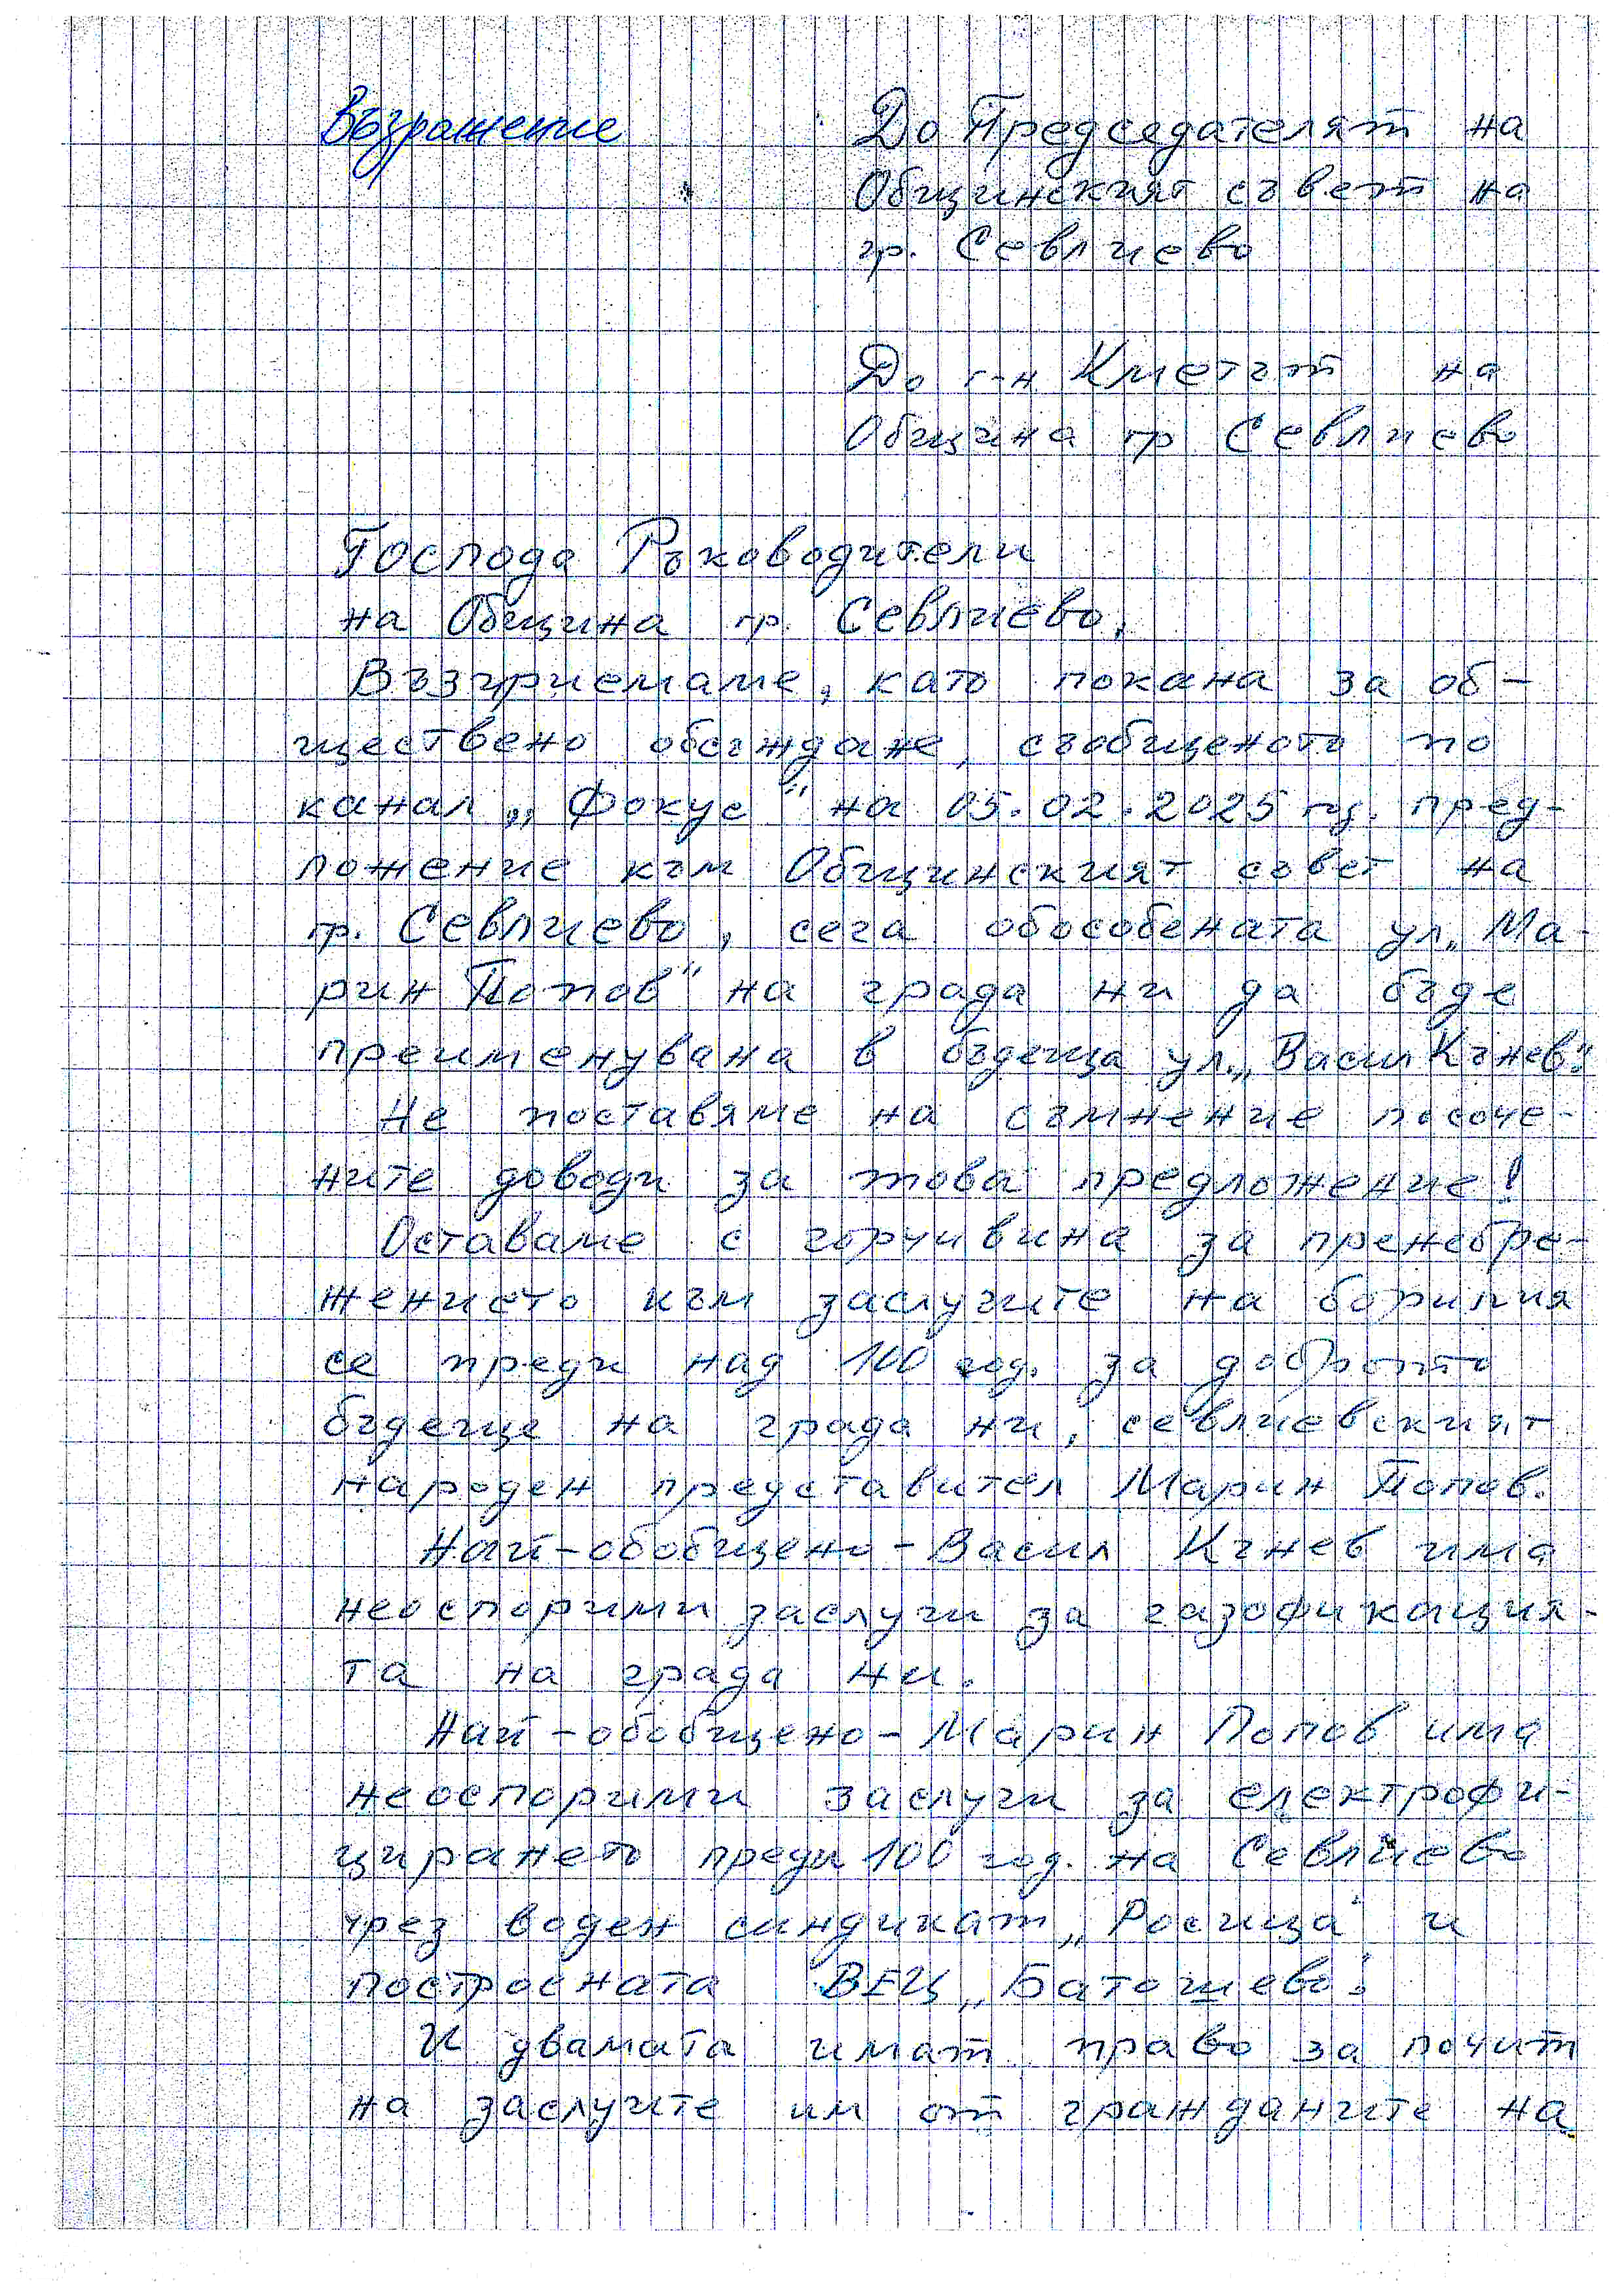 Възражение
До Председателят на
Общинският съвет на
гр. Севлиево
До г-н Кметът на
Община гр Севлиево
Господа Ръководители
на Община гр. Севлиево,
Възприемаме, като покана за об-
ществено обсъждане, съобщеното по
канал „Фокус" на 05.02.2025 гд. пред-
ложение към Общинският съвет на
гр. Севлиево, сега обособената ул. „Ма-
рин Попов" на града ни да бъде
преименувана в бъдеща ул. „Васил Кънев".
Не поставяме на съмнение посоче-
ните доводи за това предложение!
Оставаме с горчивина за пренебре-
жението към заслугите на борилия
се преди над 100 год. за доброто
бъдеще на града ни, севлиевският
народен представител Марин Попов.
Най-обобщено - Васил Кънев има
неоспорими заслуги за газофикация-
та на града ни.
Най-обобщено - Марин Попов има
неоспорими заслуги за електрофи-
цирането преди 100 год. на Севлиево
чрез воден синдикат „Росица" и
построената ВЕЦ „Батошево".
И двамата имат право за почит
на заслугите им от гражданите на